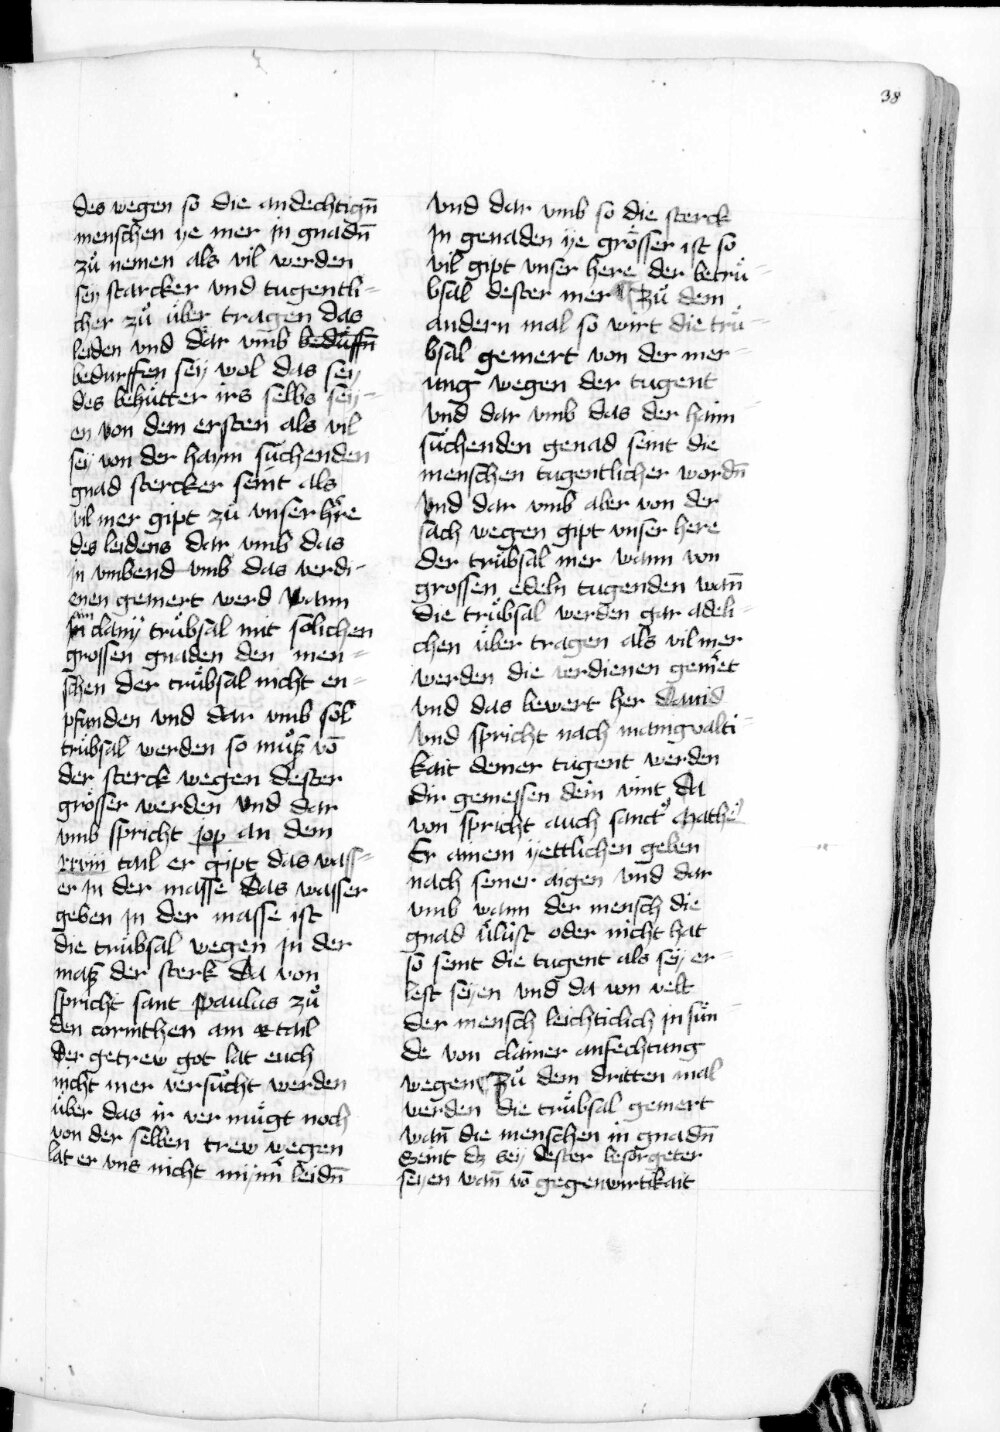 38
des wegen so die andechtign̄
menschen ye mer in gnadn̄
zů nemen als vil werden
sey starcker vnd tugentli-
cher zů über tragen das
leiden vnd dar vmb bedűffn̄
bedurffen sey wol das sey
des behütter irs selbs sey-
en von dem ersten als vil
sey von der haym suchenden
gnad stercker seint als
vil mer gipt zů vnser hre
des leidens dar vmb das
in vmbend vmb das verdi-
enen gemert werd wann
ain clany trübsal mit solichen
grossen gnaden den men-
schen der trübsal nicht en-
pfunden vnd dar vmb sol
trübsal werden so můß vō
der sterck wegen dester
grösser werden vnd dar
vmb spricht jop an dem
xxviii tail er gipt das wass-
er in der masse Das wasser
geben in der masse ist
die trübsal wegen in der
maß der sterk Da von
spricht sant paulus zů
den corinthen am x tail
Der getrew got lat euch
nicht mer versůcht werden
über das ir ver mügt noch
von der selben trew wegen
lat er vns nicht leidn̄
vnd dar vmb so die sterck
In genaden ye grösser ist so
vil gipt vnser here der betrü-
bsal dester mer ¶ Zů dem
andern mal so wirt die trü-
bsal gemert von der mer-
ung wegen der tugent
vnd dar vmb das der haim-
suchenden genad seint die
menschen tugentlicher wordn̄
vnd dar vmb aber von der
sach wegen gipt vnser here
der trübsal mer wann von
grossen edeln tugenden wan̄
die trübsal werden gar adeli-
chen über tragen als vil mer
werden die verdienen gemet
vnd das bewert her Dauid
vnd spricht nach manigualti-
kait deiner tugent werden
dir gemessen dein vint Da
von spricht auch sanct Mathe
Er ainem yettlichen geben
nach seiner aigen vnd dar
vmb wann der mensch die
gnad ůlüst oder nicht hat
so seint die tugent als sey er-
lest seyen vnd da von velt
der mensch leichticlich in sün-
de von clainer anfechtung
wegen ¶ Zů dem dritten mal
werden die trübsal gemert
wan̄ die menschen in gnadn̄
Seint dz sey dester besorgeter
seyen wan̄ vō gegenwurtikait